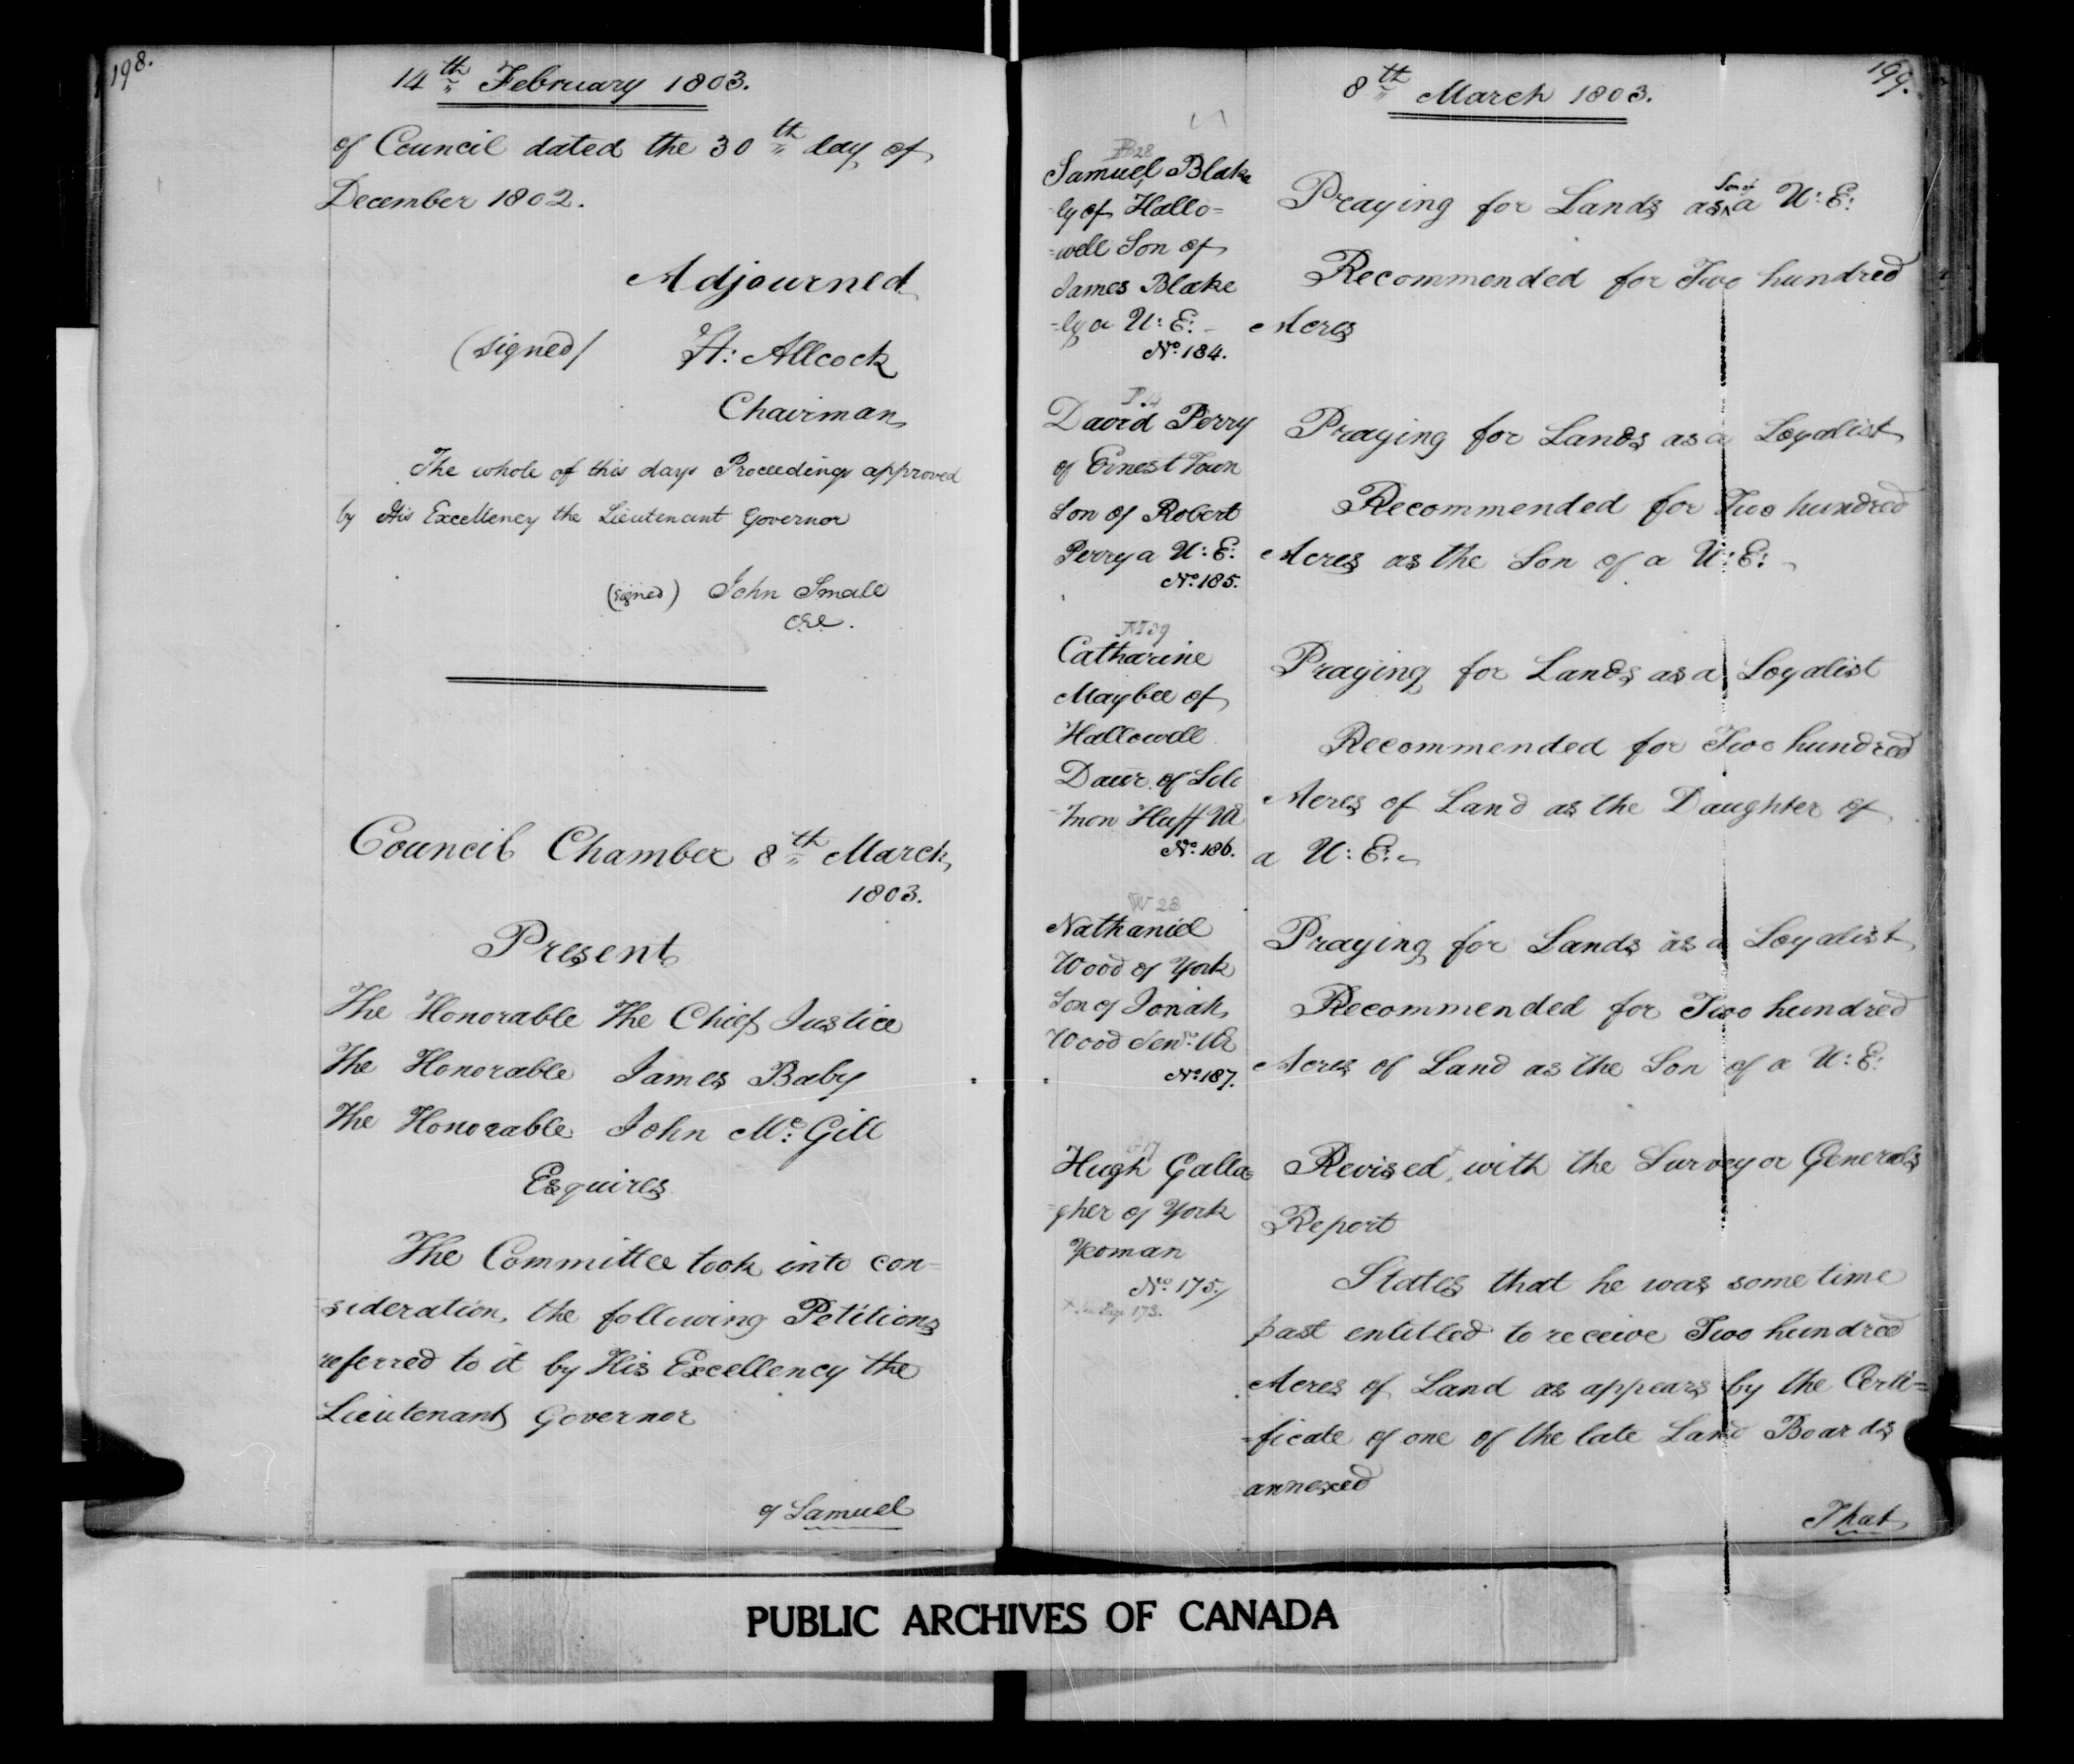 198.
14th February 1803.
of Council dated the 30th day of
December 1802.
Adjourned
(signed/ H: Allcock
Chairman
The whole of this days Proceedings approved
by His Excellency the Lieutenant Governor
(signed) John Small
Council Chamber 8th March
1803.
Present
The Honorable The Chief Justice
The Honorable James Baby
The Honorable John Mc: Gill
Esquires
The Committee took into con=
=sideration the following Petitions
referred to it by His Excellency the
Lieutenant Governor
of Samuel
199.
8th March 1803.
B28
Samuel Blake
-ly of Hallo=
=well Son of
James Blake
-ly a U: E: -
No. 184.
Praying for Lands as Son of a U: E:
Recommended for Two hundred
Acres
P.4
David Perry
of Ernest Town
Son of Robert
Perry a U: E:
No. 185.
Praying for Lands as a Loyalist
Recommended for Two hundred
Acres as the Son of a U: E:
M39
Catharine
Maybee of
Hallowell
Daur. of Solo
-mon Huff UE
No. 186.
Praying for Lands as a Loyalist
Recommended for Two hundred
Acres of Land as the Daughter of
a U: E:
W 28
Nathaniel
Wood of York
Son of Jonah
Wood Senr. UE
No. 187.
Praying for Lands as a Loyalist
Recommended for Two hundred
Acres of Land as the Son of a U: E:
G17
Hugh Galla=
-gher of York
Yeoman
No. 175/
+ See Page 173.
Revised, with the Surveyor Generals
Report
States that he was some time
past entitled to receive Two hundred
Acres of Land as appears by the Certi=
=ficate of one of the late Land Boards
annexed
That
PUBLIC ARCHIVES OF CANADA